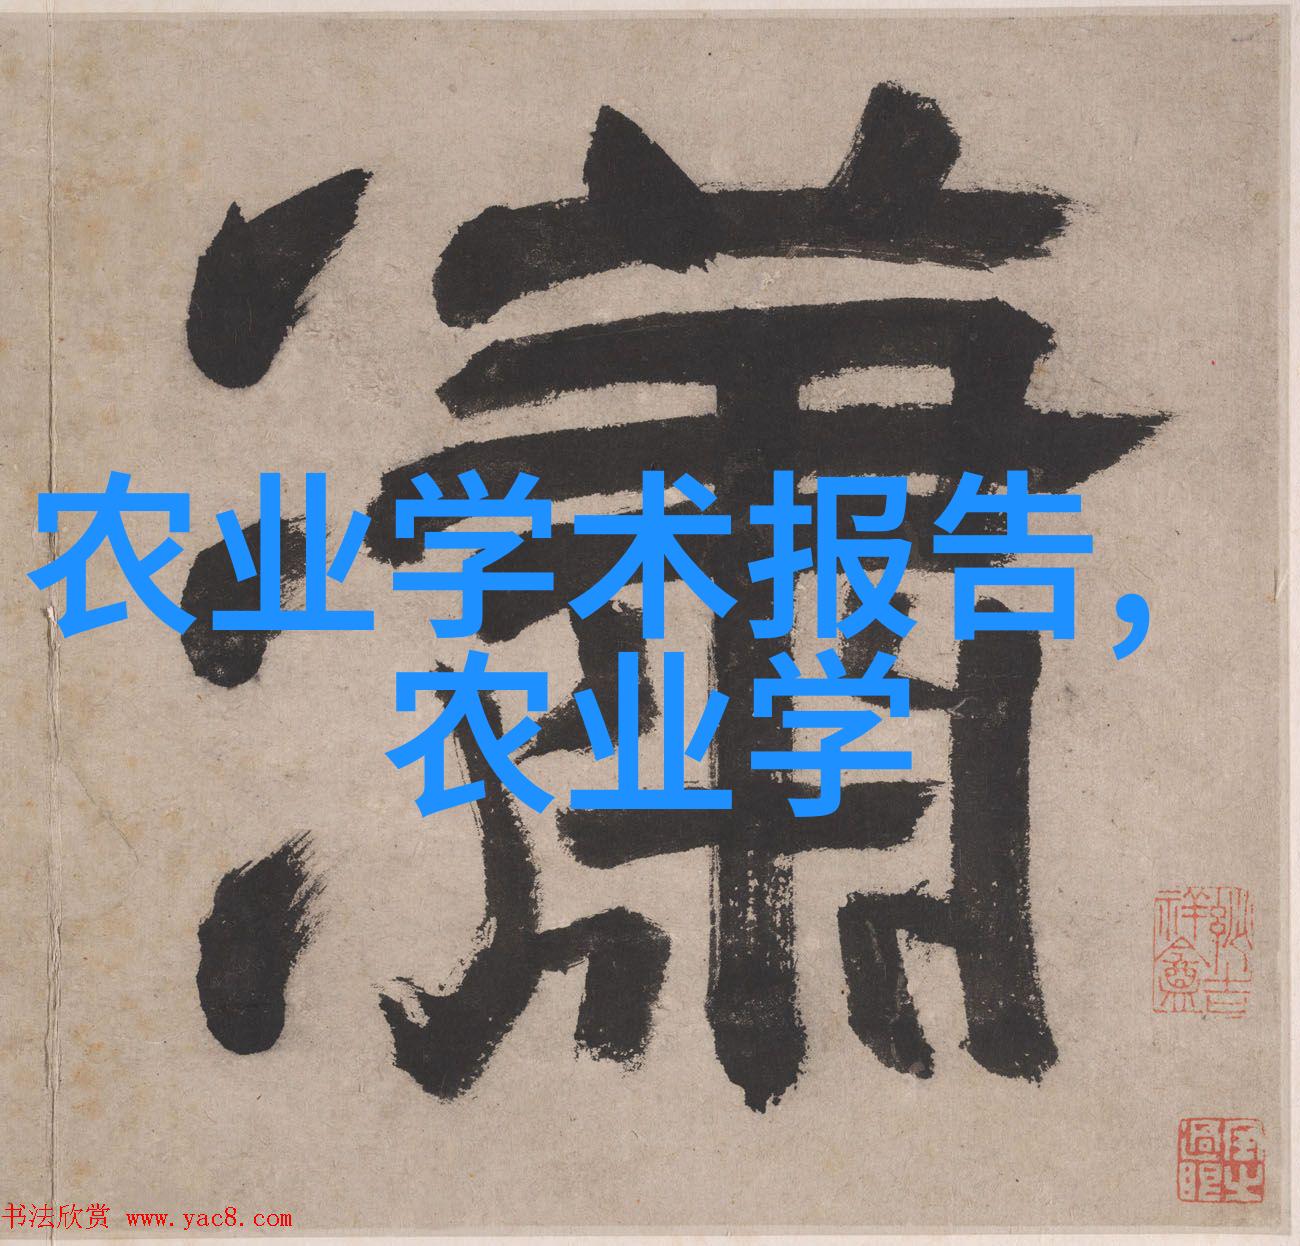 瀟
农业学术报告，
农业学
书法欣赏 www.yac8.com